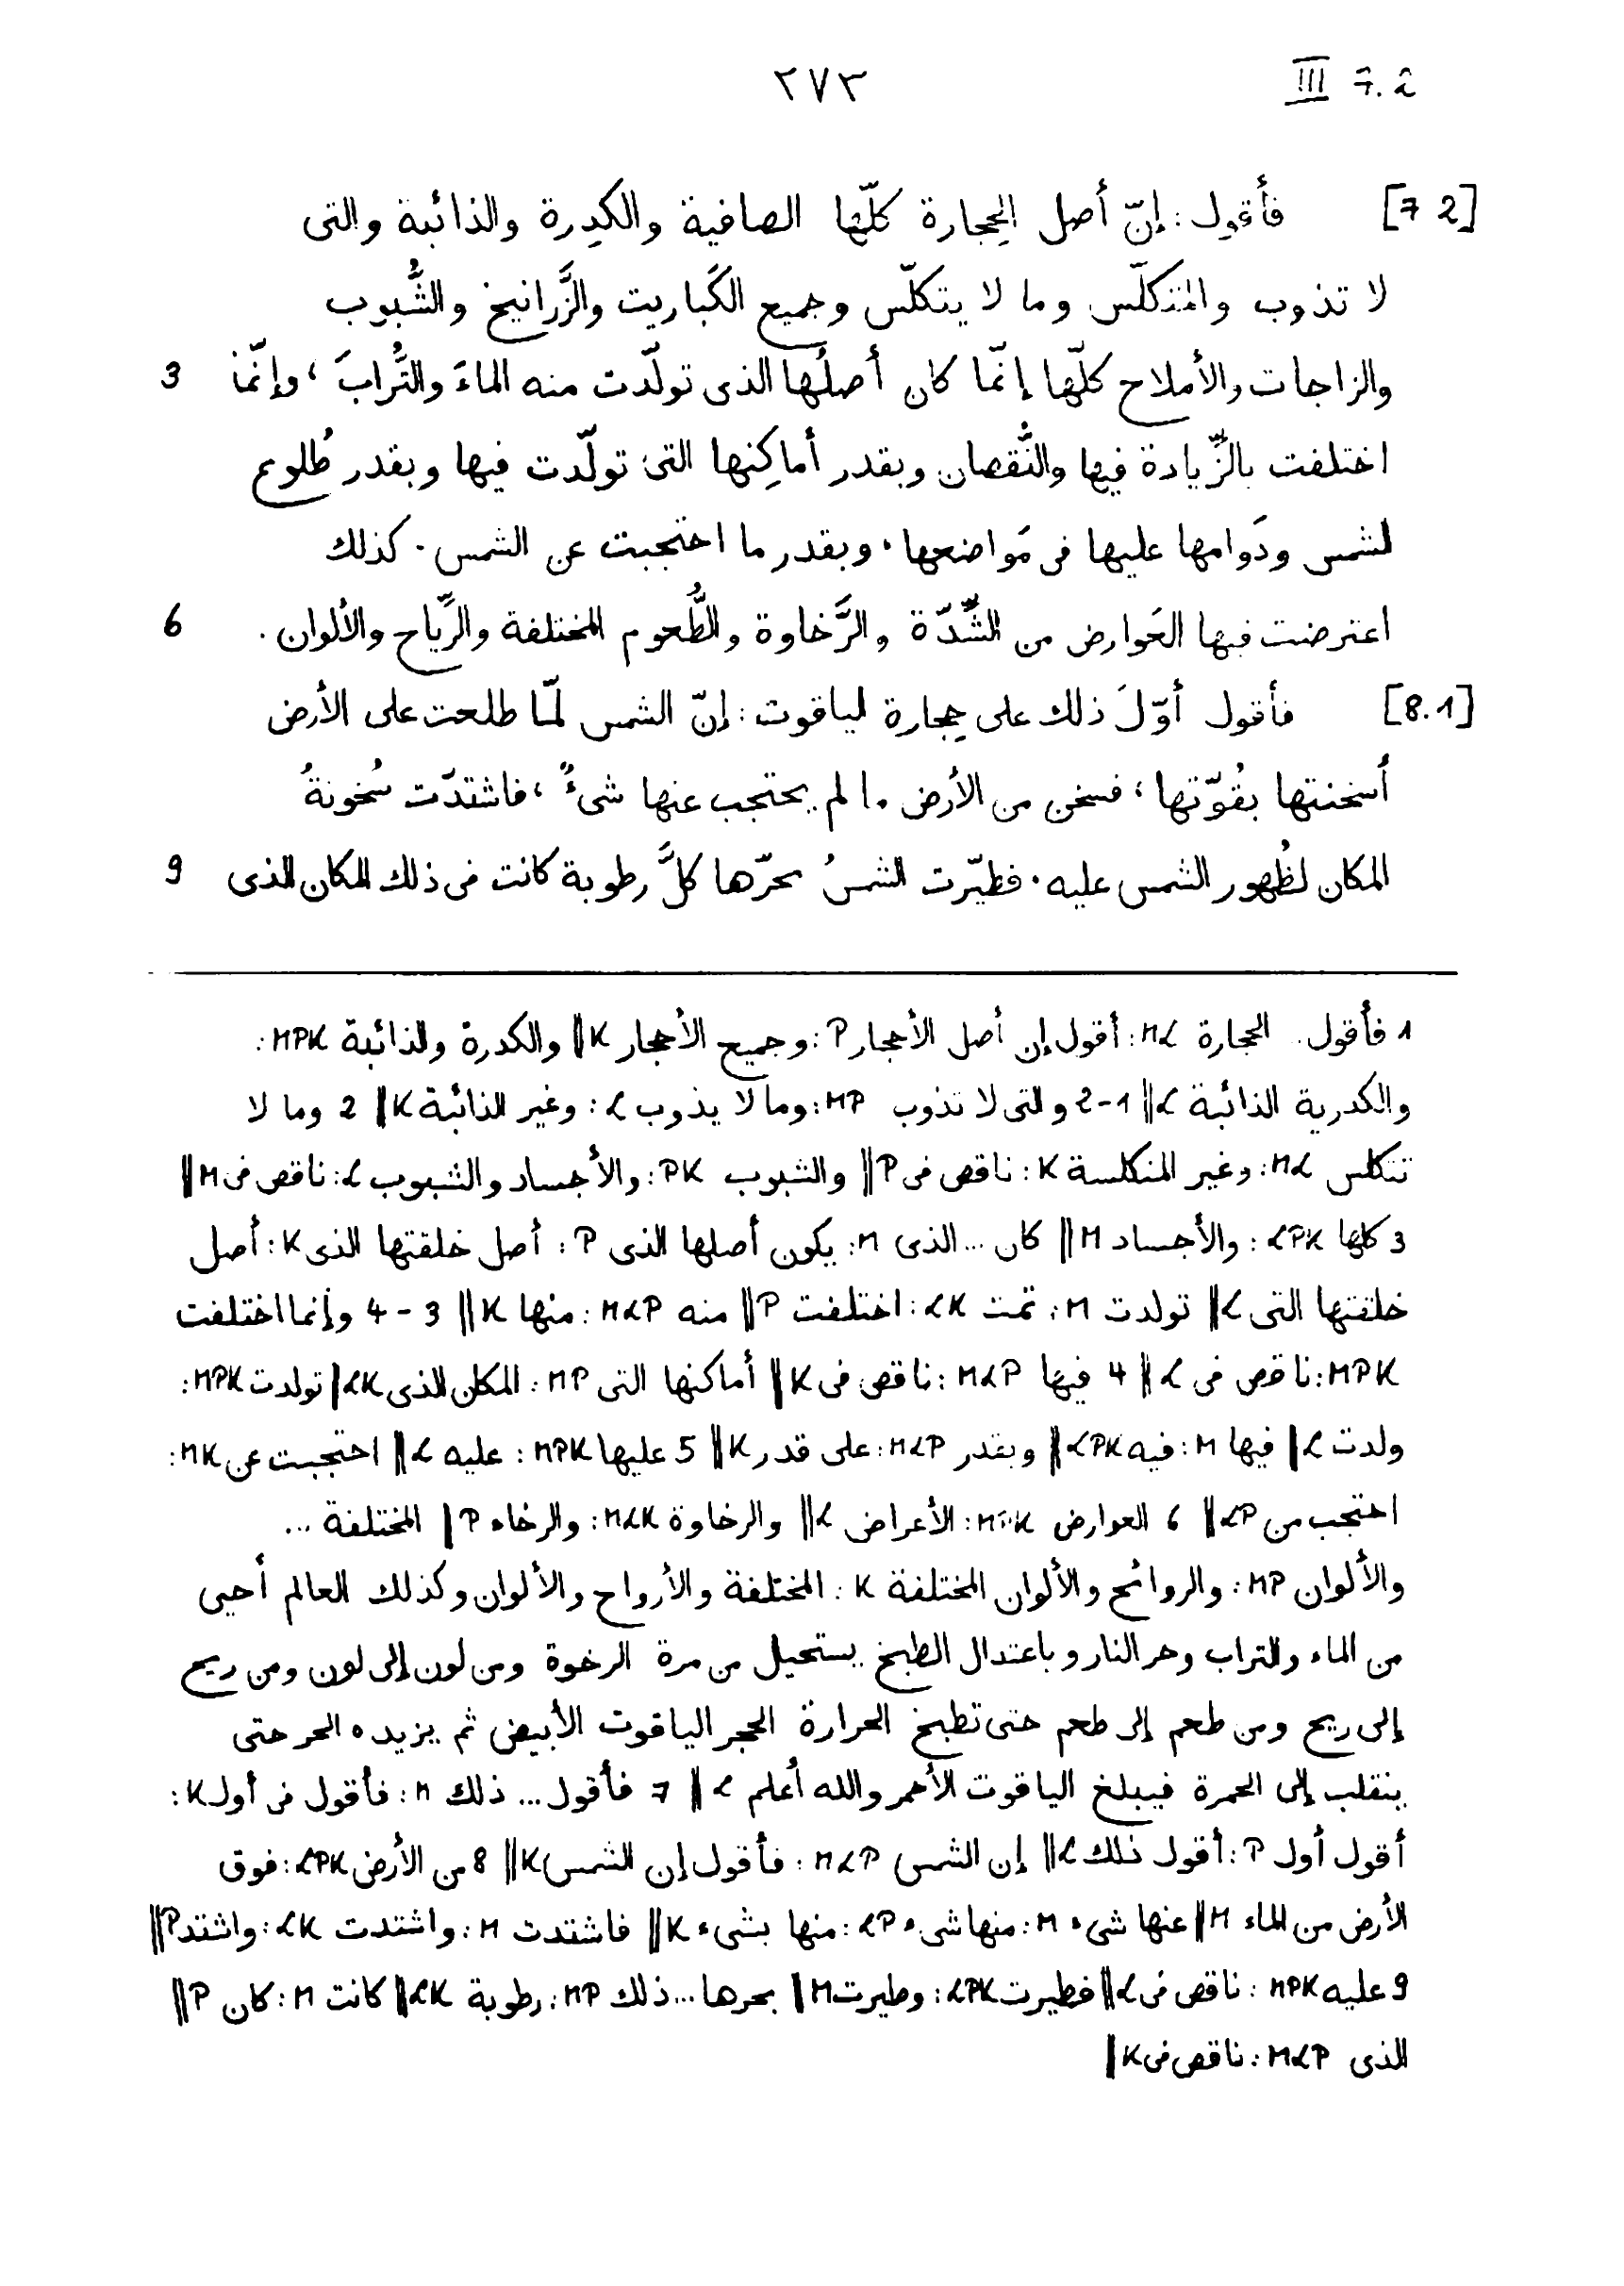 ٢٧٣ III 7.2
[7 2] فأَقول : إنّ أصل الحِجارة كلّها الصافية والكدِرة والذائبة والتى
لا تذوب والمتكلّس وما لا يتكلّس وجميع الكَباريت والزَّرانيخ والشُّبوب
والزاجات والأملاح كلّها إنّما كان أصلُها الذى تولّدت منه الماءَ والتُّرابَ ، وإنّما 3
اختلفت بالزِّيادة فيها والنُّقصان وبقدر أماكِنها التى تولّدت فيها وبقدر طُلوع
لشمس ودَوامها عليها فى مَواضعها ، وبقدر ما احتجبت عن الشمس . كذلك
اعترضت فيها العَوارض من الشِّدّة والرَّخاوة والطُّعوم المختلفة والرِّياح والألوان . 6
[8.1] فأقول أوّلَ ذلك على حِجارة لياقوت : إنّ الشمس لمّا طلعت على الأرض
أسخنتها بقُوّتها ، فسخن من الأرض ما لم يحتجب عنها شىءٌ ، فاشتدّت سُخونةُ
المكان لظُهور الشمس عليه . فطيّرت الشمسُ بحرّها كلَّ رطوبة كانت فى ذلك المكان الذى 9
1 فأقول . الحجارة ML : أقول إن أصل الأحجار P : وجميع الأحجار K || والكدرة والذائبة MPK :
والكدرية الذائبة L || 1-2 والتى لا تذوب MP : وما لا يذوب L : وغير الذائبة K || 2 وما لا
تتكلس ML : وغير المتكلسة K : ناقص فى P || والشبوب PK : والأجساد والشبوب L : ناقص فى M ||
3 كلها LPK : والأجساد M || كان ... الذى M : يكون أصلها الذى P : أصل خلقتها الذى K : أصل
خلقتها التى L || تولدت M : تمت LK : اختلفت P || منه MLP : منها K || 3 - 4 وإنما اختلفت
MPK : ناقص فى L || 4 فيها MLP : ناقص فى K || أماكنها التى MP : المكان الذى LK || تولدت MPK :
ولدت L || فيها M : فيه LPK || وبقدر MLP : على قدر K || 5 عليها MPK : عليه L || احتجبت عن MK :
احتجب من LP || 6 العوارض MPK : الأعراض L || والرخاوة MLK : والرخاء P || المختلفة ...
والألوان MP : والروائح والألوان المختلفة K : المختلفة والأرواح والألوان وكذلك العالم أحيى
من الماء والتراب وحر النار وباعتدال الطبخ يستحيل من مرة الرخوة ومن لون إلى لون ومن ريح
إلى ريح ومن طعم إلى طعم حتى تطبخ الحرارة الحجر الياقوت الأبيض ثم يزيده الحر حتى
ينقلب إلى الحمرة فيبلغ الياقوت الأحمر والله أعلم L || 7 فأقول ... ذلك M : فأقول فى أول K :
أقول أول P : أقول ذلك L || إن الشمس MLP : فأقول إن الشمس K || 8 من الأرض LPK : فوق
الأرض من الماء M || عنها شىء M : منها شىء LP : منها بشىء K || فاشتدت M : واشتدت LK : واشتد P ||
9 عليه MPK : ناقص فى L || فطيرت LPK : وطيرت M || بحرها ... ذلك MP : رطوبة LK || كانت M : كان P ||
الذى MLP : ناقص فى K ||